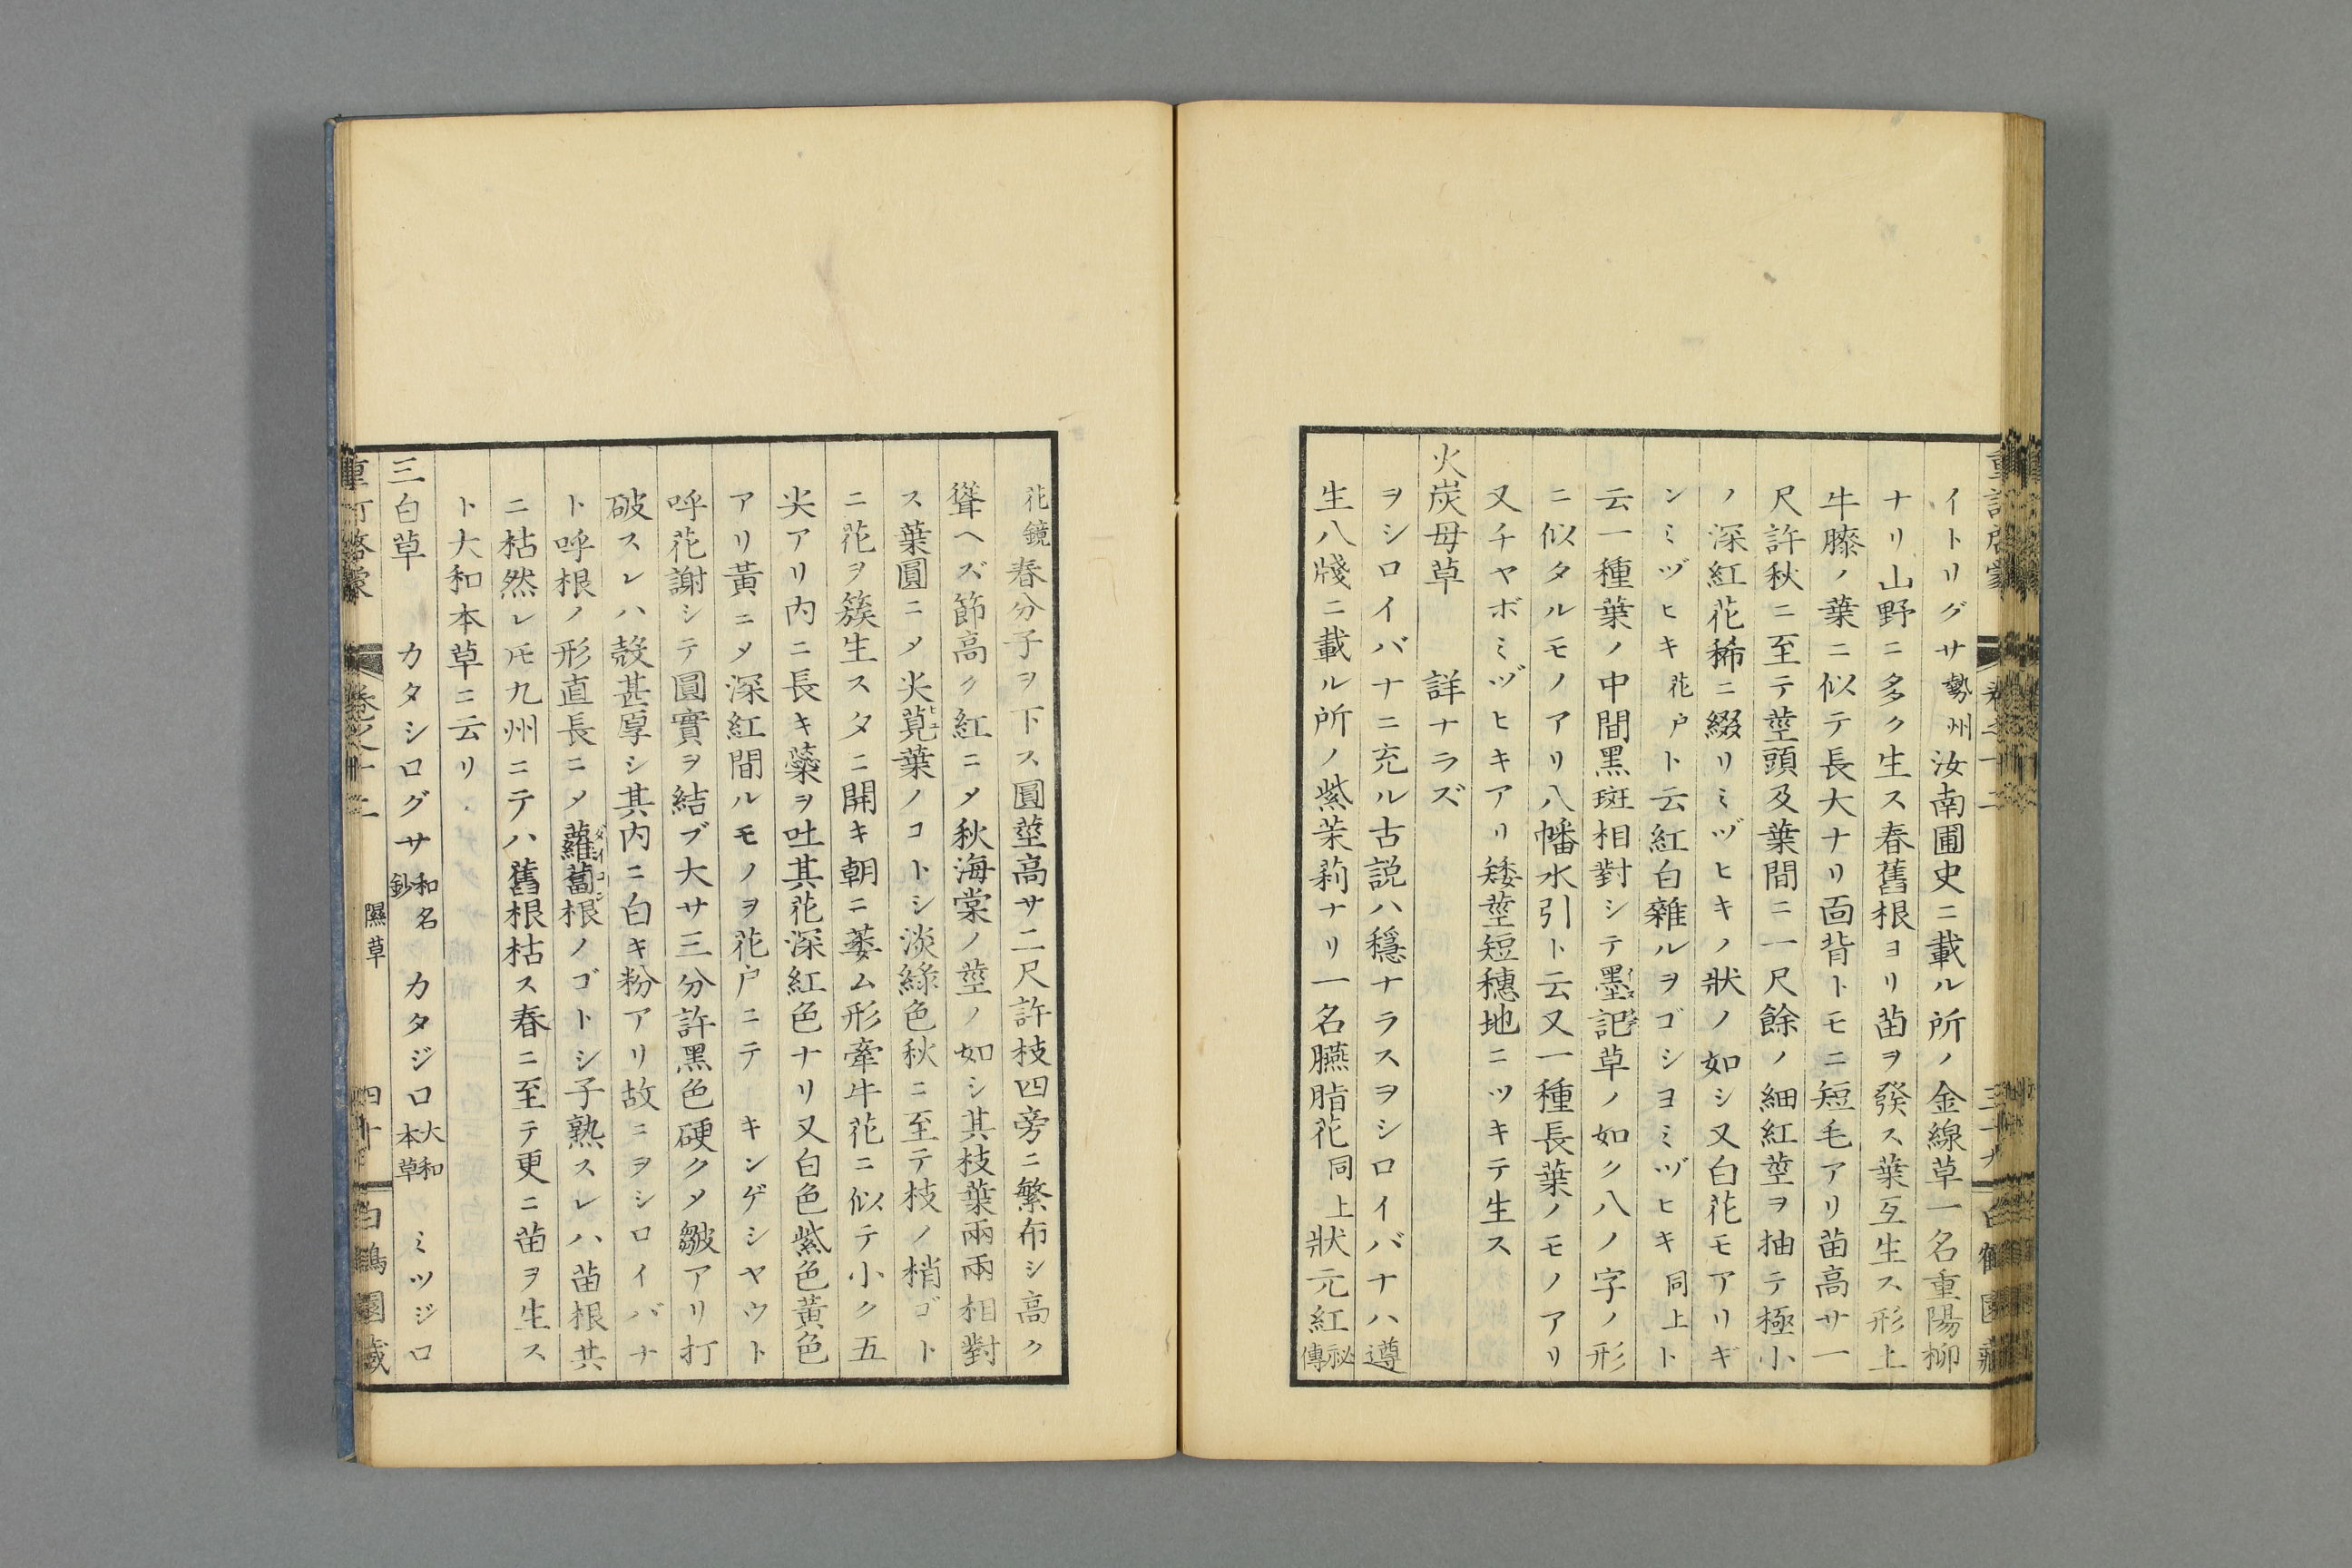 イトリグサ勢州汝南圃史ニ載ル所ノ金線草一名重陽柳
ナリ山野ニ多ク生ス春舊根ヨリ苗ヲ發ス葉互生ス形上
牛膝ノ葉ニ似テ長大ナリ面背トモニ短毛アリ苗高サ一
尺許秋ニ至テ莖頭及葉間ニ一尺餘ノ細紅莖ヲ抽テ極小
ノ深紅花稀ニ綴リミヅヒキノ狀ノ如シ又白花モアリギ
ンミヅヒキ花戸ト云紅白雜ルヲゴシヨミヅヒキ同上ト
云一種葉ノ中間黑斑相對シテ墨記草ノ如ク八ノ字ノ形
ニ似タルモノアリ八幡水引ト云又一種長葉ノモノアリ
又チヤボミヅヒキアリ矮莖短穗地ニツキテ生ス
火炭母草 詳ナラズ
ヲシロイバナニ充ル古説ハ穩ナラスヲシロイバナハ遵
生八牋ニ載ル所ノ紫茉莉ナリ一名臙脂花同上狀元紅祕傳
花鏡春分子ヲ下ス圓莖高サ二尺許枝四旁ニ繁布シ高ク
聳ヘズ節高ク紅ニメ秋海棠ノ莖ノ如シ其枝葉兩兩相對
ス葉圓ニメ尖莧葉ノコトシ淡綠色秋ニ至テ枝ノ梢ゴト
ニ花ヲ簇生スタニ開キ朝ニ萎ム形牽牛花ニ似テ小ク五
尖アリ内ニ長キ蘂ヲ吐其花深紅色ナリ又白色紫色黃色
アリ黃ニメ深紅間ルモノヲ花戸ニテ キンゲシヤウト
呼花謝シテ圓實ヲ結ブ大サ三分許黑色硬クメ皺アリ打
破スレハ殼甚厚シ其内ニ白キ粉アリ故ニヲシロイバナ
ト呼根ノ形直長ニメ蘿蔔根ノゴトシ子熟スレハ苗根共
ニ枯然レ𪜈九州ニテハ舊根枯ス春ニ至テ更ニ苗ヲ生ス
ト大和本草ニ云リ
三白草 カタシログサ和名鈔 カタジロ大和本草 ミツジロ
隰草
四十
白鶴園藏